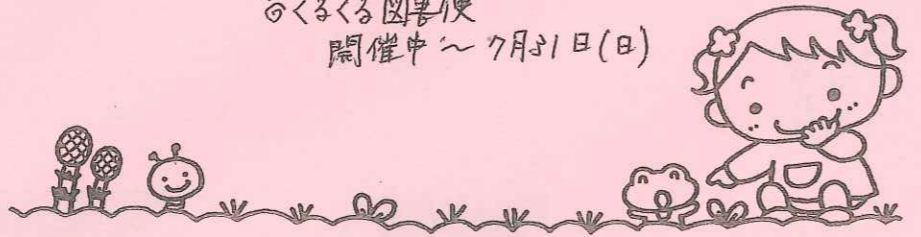 ◎くるくる図書便
開催中～7月31日(日)